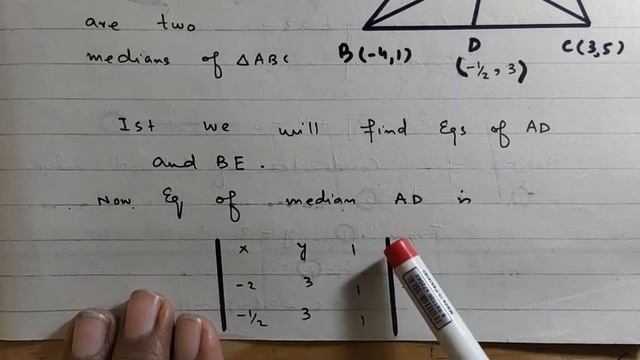 are two
medians of △ABC
B(-4,1)
D
(-1/2, 3)
C(3,5)
Ist we will find Eqs of AD
and BE.
Now Eq of median AD is
x y 1
-2 3 1
-1/2 3 1